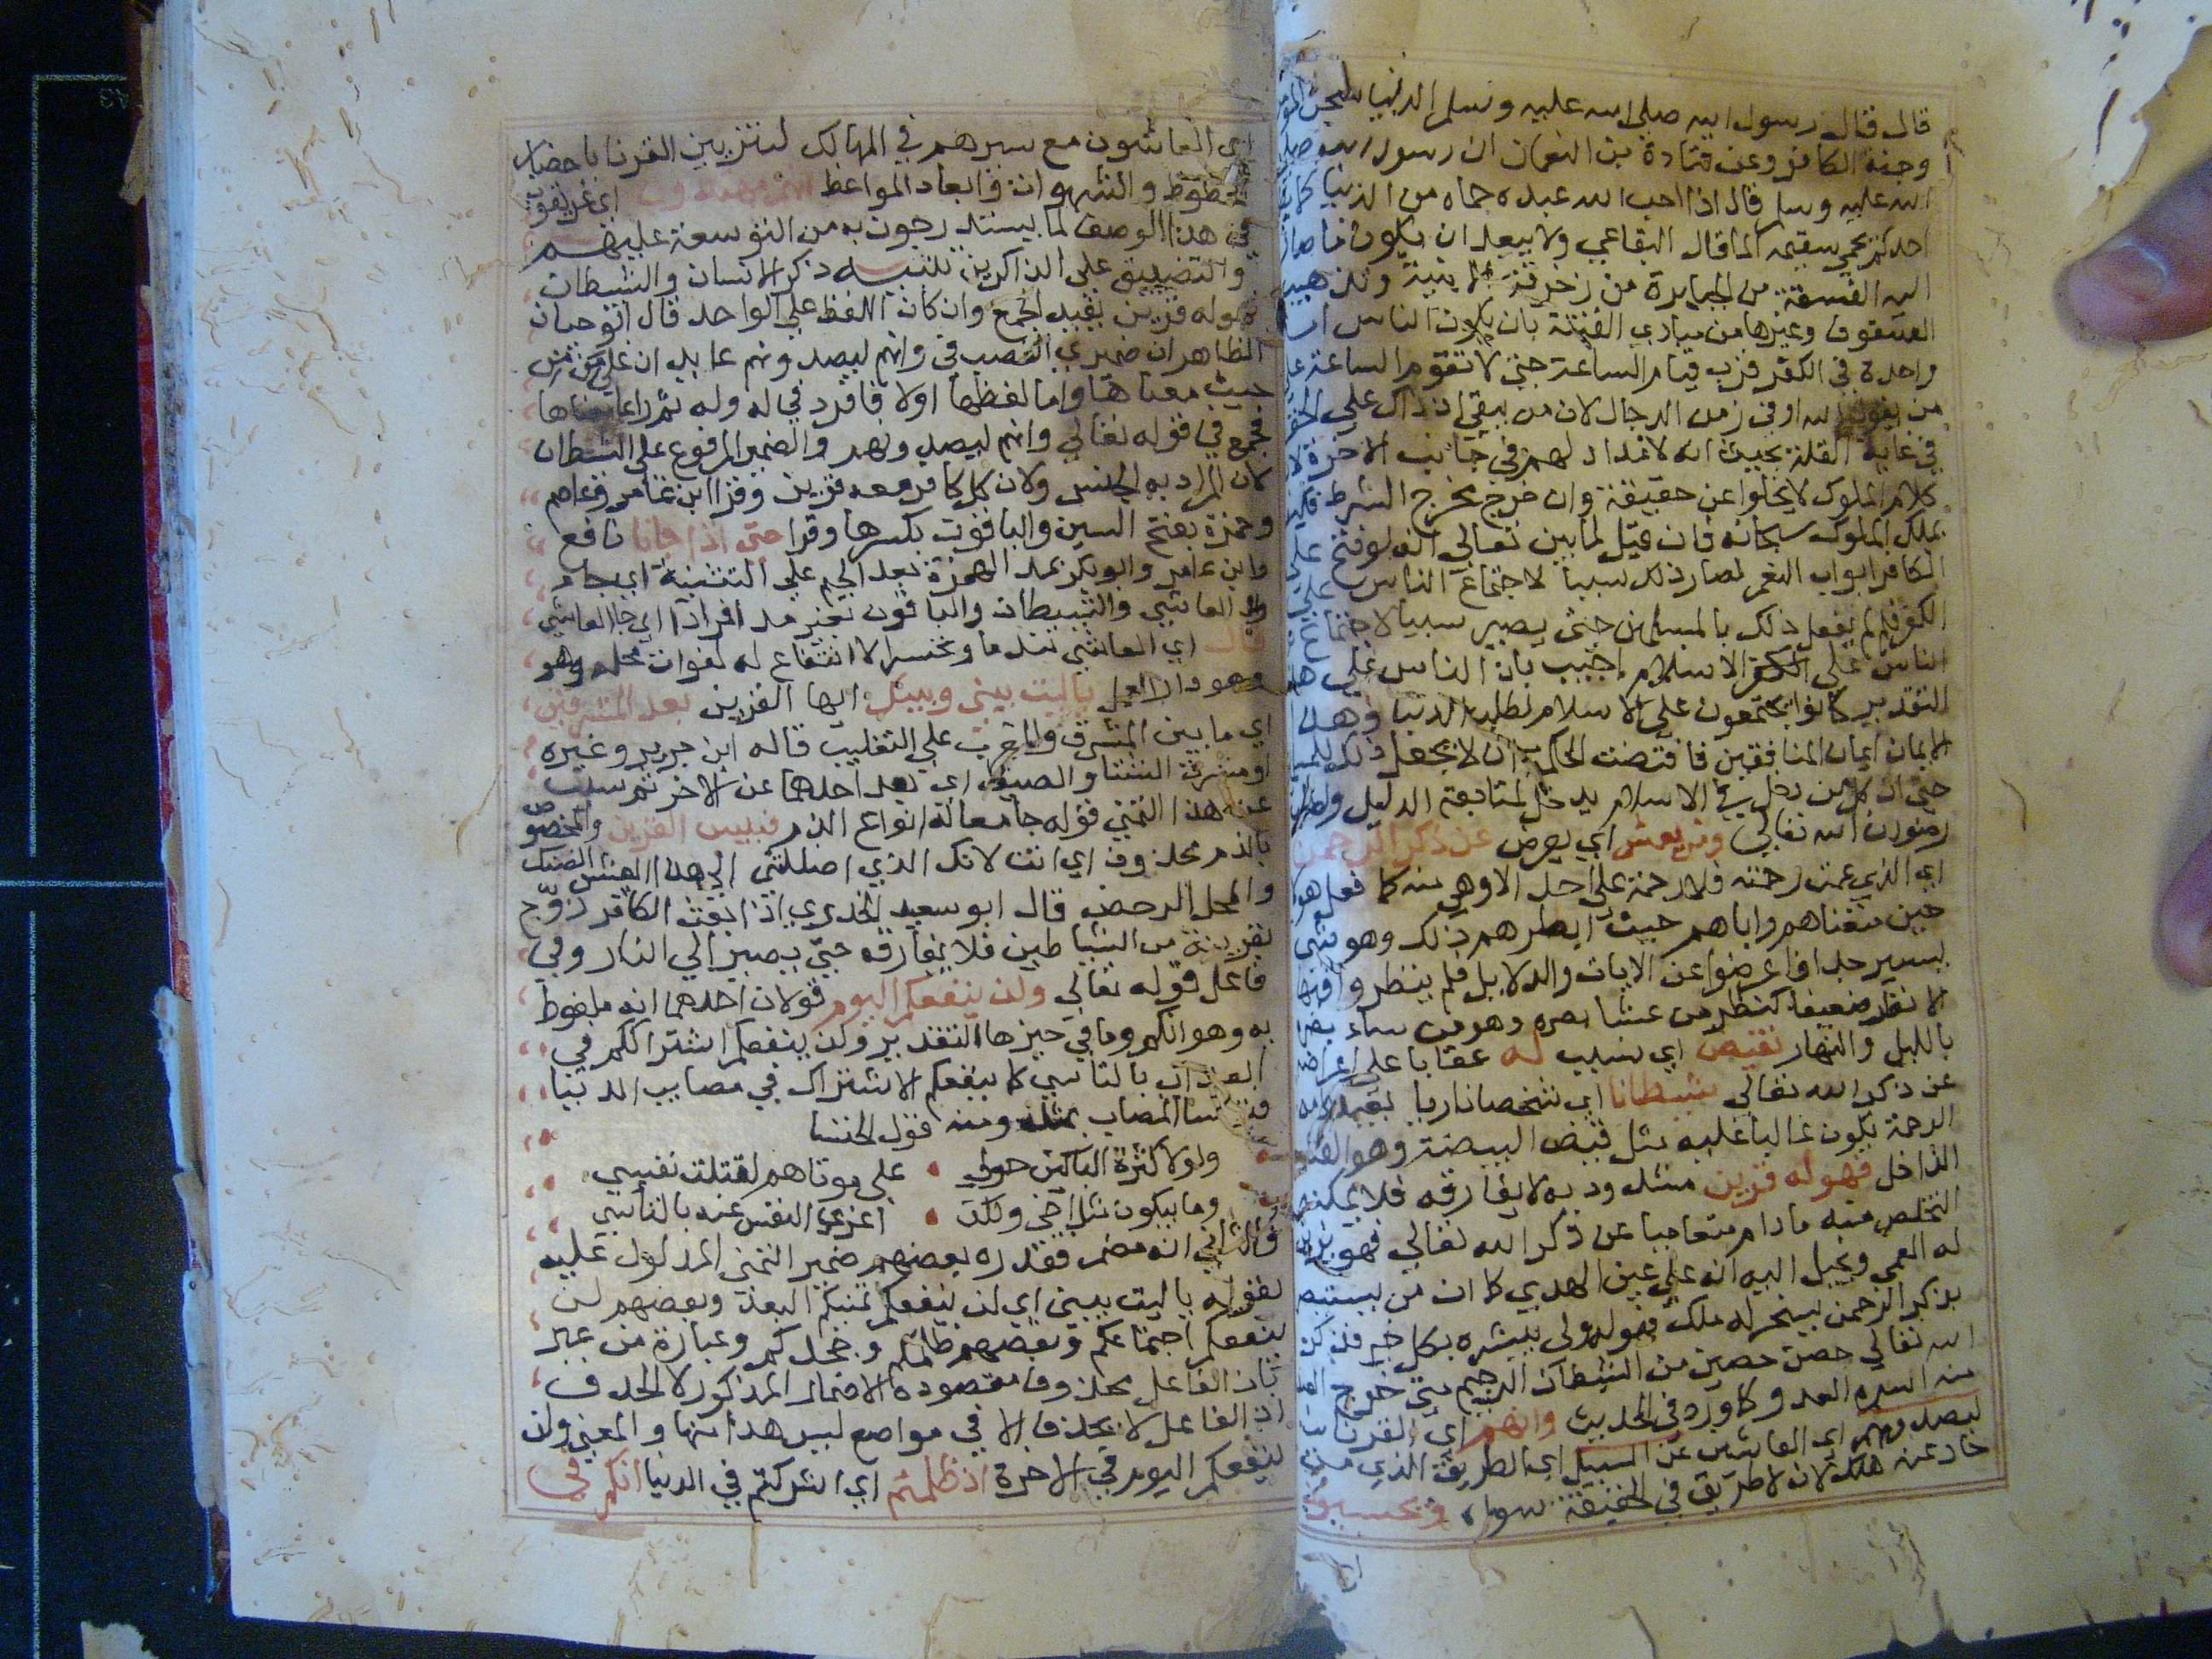 قال قال رسول الله صلى الله عليه وسلم الدنيا سجن المومن
وجنة الكافر وعن قتادة بن النعمان ان رسول الله صلى
الله عليه وسلم قال اذا احب الله عبده حماه من الدنيا كما
احدكم يحمي سقيمه الما قال البقاعي ولا يبعد ان يكون ما صار
اليه الفسقة من الجبابرة من زخرفة الابنية وتذهيب
السقوف وغيرها من مبادي الفتنة بان يكون الناس امة
واحدة في الكفر قرب قيام الساعة حتى لا تقوم الساعة على
من يقول الله او في زمن الدجال لان من يبقى اذ ذاك على الحق
في غاية القلة بحيث انه لا عداد لهم في جانب الاخرة لان
كلام الملوك لا يخلوا عن حقيقة وان خرج مخرج الشرط فكيف
بملك الملوك سبحانه فان قيل لما بين تعالى انه لو فتح على
الكافر ابواب النعم لصار ذلك سببا لاجتماع الناس على
الكفر فلم لم يفعل ذلك بالمسلمين حتى يصير سببا لاجتماع
الناس على الاسلام اجيب بان الناس على هذا
التقدير كانوا يجتمعون على الاسلام لطلب الدنيا وهذا
الايمان ايمان المنافقين فاقتضت الحكمة ان لا يجعل ذلك للمسلمين
حتى ان كل من دخل في الاسلام يدخل لمتابعة الدليل ولطلب
رضوان الله تعالى ومن يعش اي يعرض عن ذكر الرحمن
اي الذي عمت رحمته فلا رحمة على احد الا وهي منه كما فعل هولاء
حين متعناهم واباهم حيث ابطرهم ذلك وهو شي
يسير جدا فاعرضوا عن الايات والدلايل فلم ينظروا فيها
الا نظرا ضعيفا كنظر من عشا بصره وهو من ساء بصره
بالليل والنهار نقيض اي نسبب له عقابا على اعراضه
عن ذكر الله تعالى شيطانا اي شخصا ناريا بعيدا من
الرحمة يكون غالبا عليه مثل قيض البيضة وهو القشر
الداخل فهو له قرين مشدود به لا يفارقه فلا يمكنه
التخلص منه ما دام متعاميا عن ذكر الله تعالى فهو يزين
له العمى ويخيل اليه انه على عين الهدى كما ان من يستبصر
بذكر الرحمن يسخر له ملك فهو له ولي يبشره بكل خير فذكر
الله تعالى حصن حصين من الشيطان الرجيم متى خرج العبد
منه اسره العدو كما ورد في الحديث وانهم اي القرناء
ليصدونهم اي العاشين عن السبيل اي الطريق الذي من
حاد عنه هلك لانه لا طريق في الحقيقة سواه ويحسبون
اي العاشون مع سيرهم في المهالك لتزيين القرنا باحضار
الحظوظ والشهوات وابعاد المواعظ انهم مهتدون اي عريقون
في هذا الوصف لما يستدرجون به من التوسعة عليهم
والتضييق على الذاكرين تنبيه ذكر الانسان والشيطان
قوله قرين بقيد الجمع وان كان اللفظ على الواحد قال ابو حيان
الظاهر ان ضميري النصب في وانهم ليصدونهم عايد ان على من
حيث معناها واما لفظها اولا فافرد في له وله ثم راعا معناها
فجمع في قوله تعالى وانهم ليصدونهم والضمير المرفوع على الشيطان
لان المراد به الجنس ولان كل كافر معه قرين وقرا ابن عامر وعاصم
وحمزة بفتح السين والباقون بكسرها وقرا حتى اذا جانا نافع
وابن عامر وابو بكر بمد الهمزة بعد الجيم على التثنية اي جاء
والعاشي والشيطان والباقون بغير مد افرادا اي جا العاشي
قال اي العاشي تندما وتحسرا لا انتفاع له لفوات محله وهو
وهو دار العمل ياليت بيني وبينك ايها القرين بعد المشرقين
اي ما بين المشرق والمغرب على التغليب قاله ابن جرير وغيره
او مشرق الشتا والصيف اي بعد احدهما عن الاخر ثم سبب
عنه هذا التمني قوله جامعا له انواع الذم فبيس القرين والمخصوص
بالذم محذوف اي انت لانك الذي اضللتني الى هذا العيش الضنك
والمحل الدحض قال ابو سعيد الخدري اذا ابعث الكافر زوج
بقرينه من الشياطين فلا يفارقه حتى يصير الى النار وفي
فاعل قوله تعالى ولن ينفعكم اليوم قولان احدهما انه ملفوظ
به وهو انكم وما في حيزها التقدير ولن ينفعكم اشتراككم في
العذاب بالتاسي كما ينفعكم الاشتراك في مصايب الدنيا
المصاب بمثله ومنه قول الخنسا
ولولا كثرة الباكين حولي • على موتاهم لقتلت نفسي
وما يبكون مثل اخي ولكن • اعزي النفس عنه بالتاسي
والثاني انه مضمر فقدره بعضهم ضمير التمني المدلول عليه
بقوله ياليت بيني اي لن ينفعكم تمنيكم البعد وبعضهم لن
ينفعكم اجتماعكم وبعضهم ظلمكم وجحدكم وعبارة من عبر
بان الفاعل محذوف مقصوده الاضمار المذكور لا الحذف
اذ الفاعل لا يحذف الا في مواضع ليس هذا منها والمعنى ولن
ينفعكم اليوم في الاخرة اذ ظلمتم اي اشركتم في الدنيا انكم في